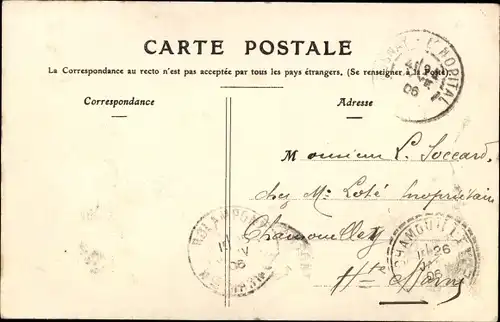 CARTE POSTALE
La Correspondance au recto n'est pas acceptée par tous les pays étrangers. (Se renseigner à la Poste).
Correspondance
Adresse
HOPITAL
06
Monsieur L. Soccard
chez Mr Loté Propriétaire
Chamouilley
Hte Marne
06
CHAMOUILLEY
26
06